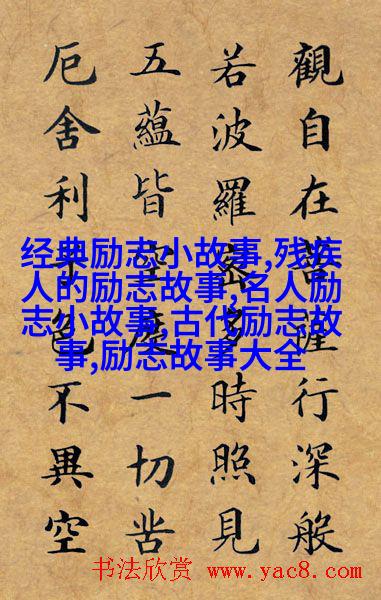 觀自在菩薩行深般
若波羅蜜多時照見
五蘊皆空度一切苦
厄舍利子色不異空
经典励志小故事,残疾
人的励志故事,名人励
志小故事,古代励志故
事,励志故事大全
书法欣赏 www.yac8.com